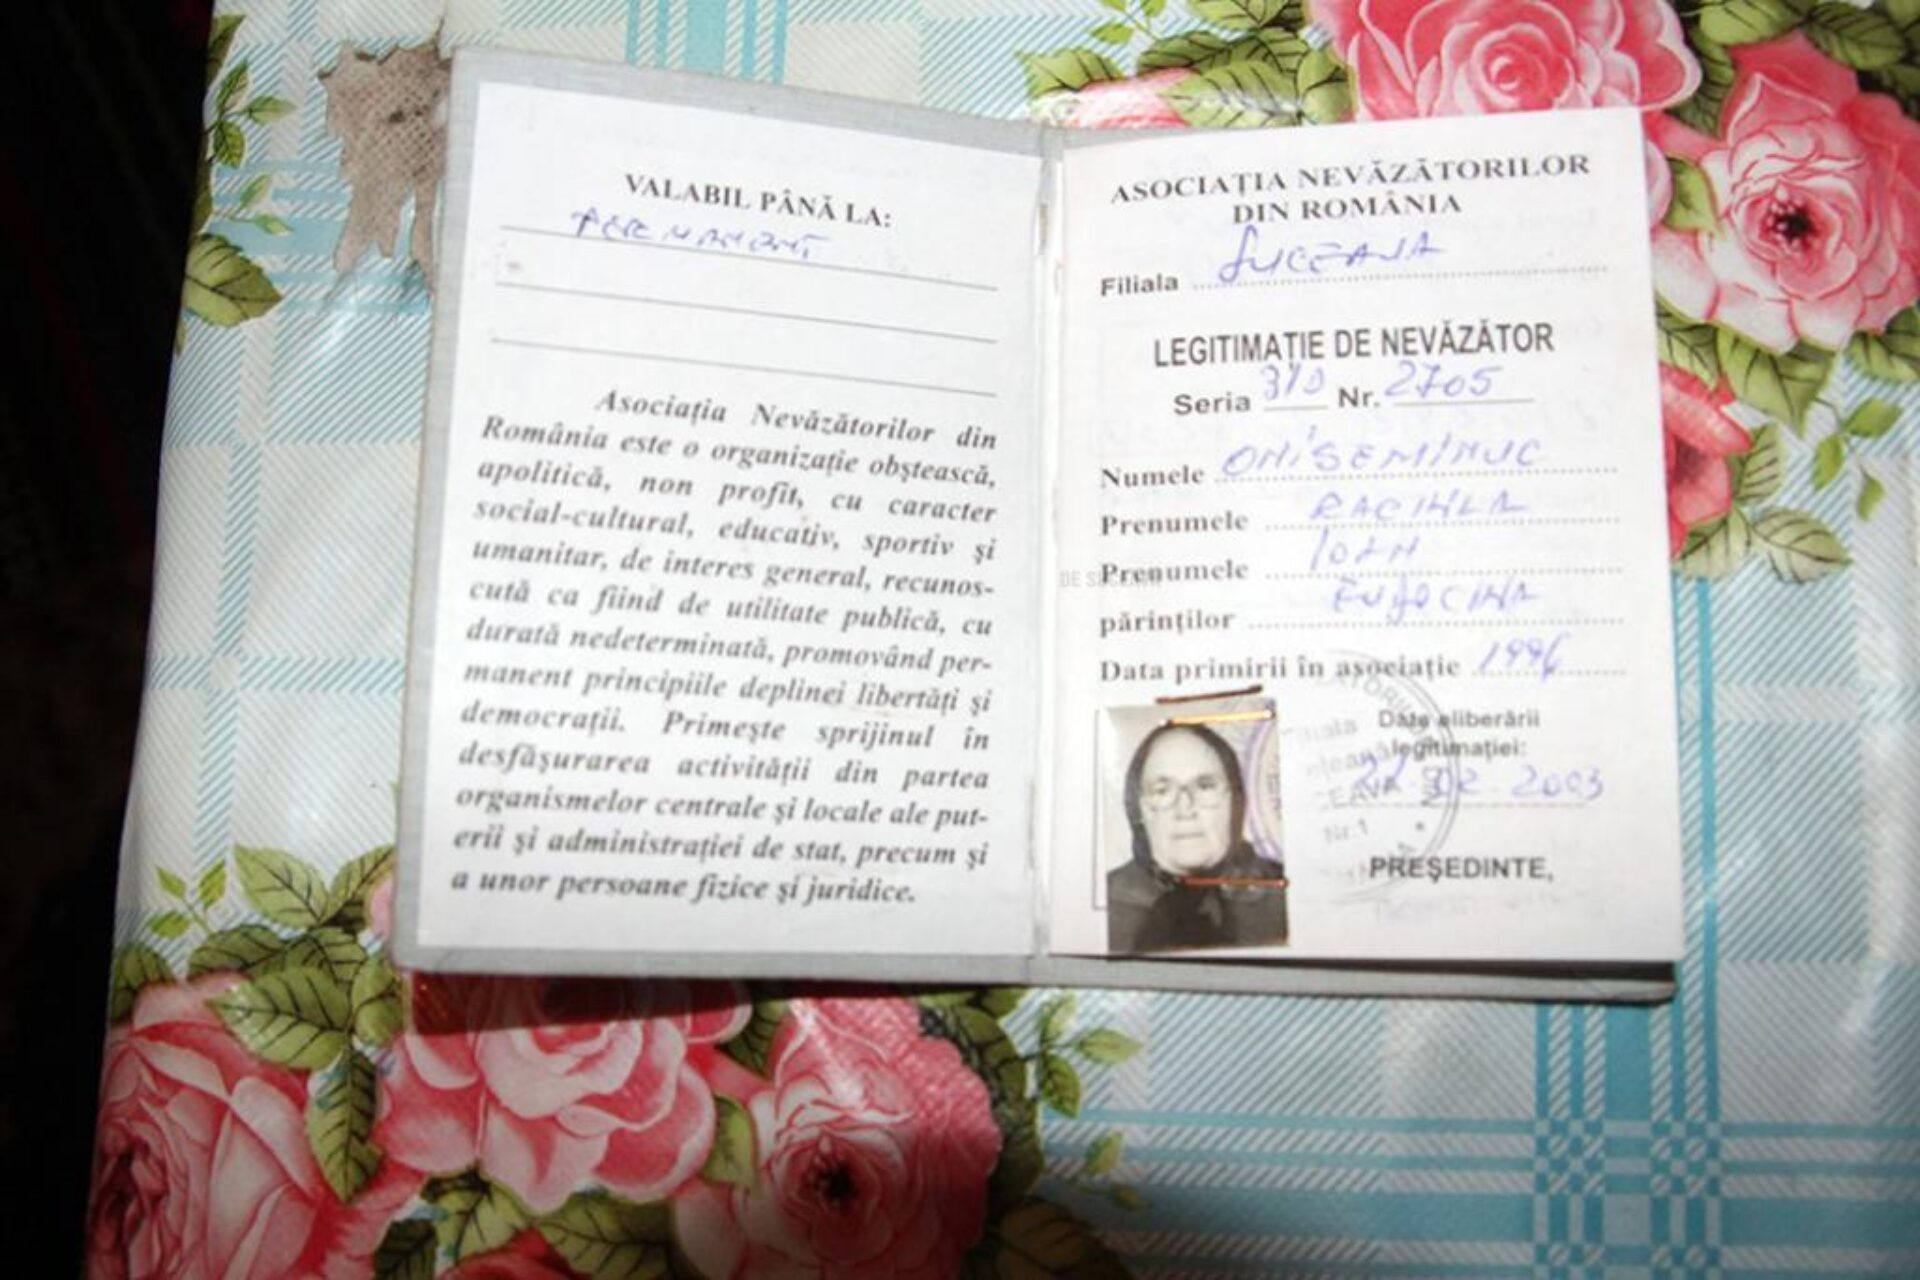 VALABIL PÂNĂ LA:
PERMANENT
Asociaţia Nevăzătorilor din
România este o organizaţie obştească,
apolitică, non profit, cu caracter
social-cultural, educativ, sportiv şi
umanitar, de interes general, recunos-
cută ca fiind de utilitate publică, cu
durată nedeterminată, promovând per-
manent principiile deplinei libertăţi şi
democraţii. Primeşte sprijinul în
desfăşurarea activităţii din partea
organismelor centrale şi locale ale put-
erii şi administraţiei de stat, precum şi
a unor persoane fizice şi juridice.
ASOCIAŢIA NEVĂZĂTORILOR
DIN ROMÂNIA
Filiala SUCEAVA
LEGITIMAŢIE DE NEVĂZĂTOR
Seria Nr. 2705
Numele ONISEMINUC
Prenumele RACHILA
Prenumele IOAN
părinţilor
Data primirii în asociaţie 1996
Data eliberării
legitimaţiei:
02 2003
Nr.1
PREŞEDINTE,